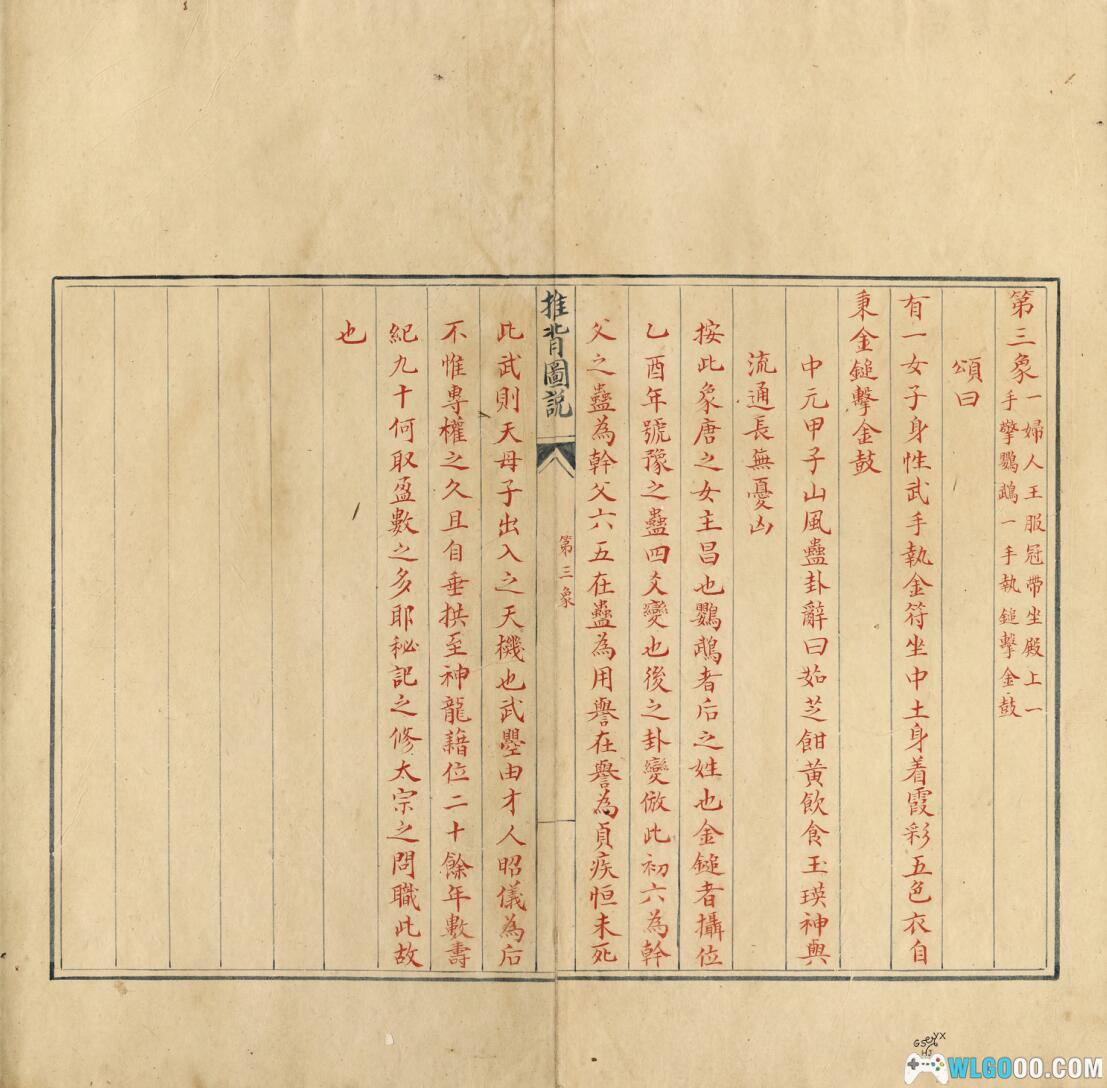 第三象
一婦人王服冠帶坐殿上一
手擎鸚鵡一手執鎚擊金鼓
頌曰
有一女子身性武手執金符坐中土身着霞彩五色衣自
秉金鎚擊金鼓
中元甲子山風蠱卦辭曰茹芝餌黃飲食玉瑛神與
流通長無憂凶
按此象唐之女主昌也鸚鵡者后之姓也金鎚者攝位
乙酉年號豫之蠱四爻變也後之卦變倣此初六為幹
父之蠱為幹父六五在蠱為用譽在譽為貞疾恒未死
推背圖說
第三象
此武則天母子出入之天機也武曌由才人昭儀為后
不惟專權之久且自垂拱至神龍藉位二十餘年數壽
紀九十何取盈數之多耶秘記之修太宗之問職此故
也
WLGOOO.COM